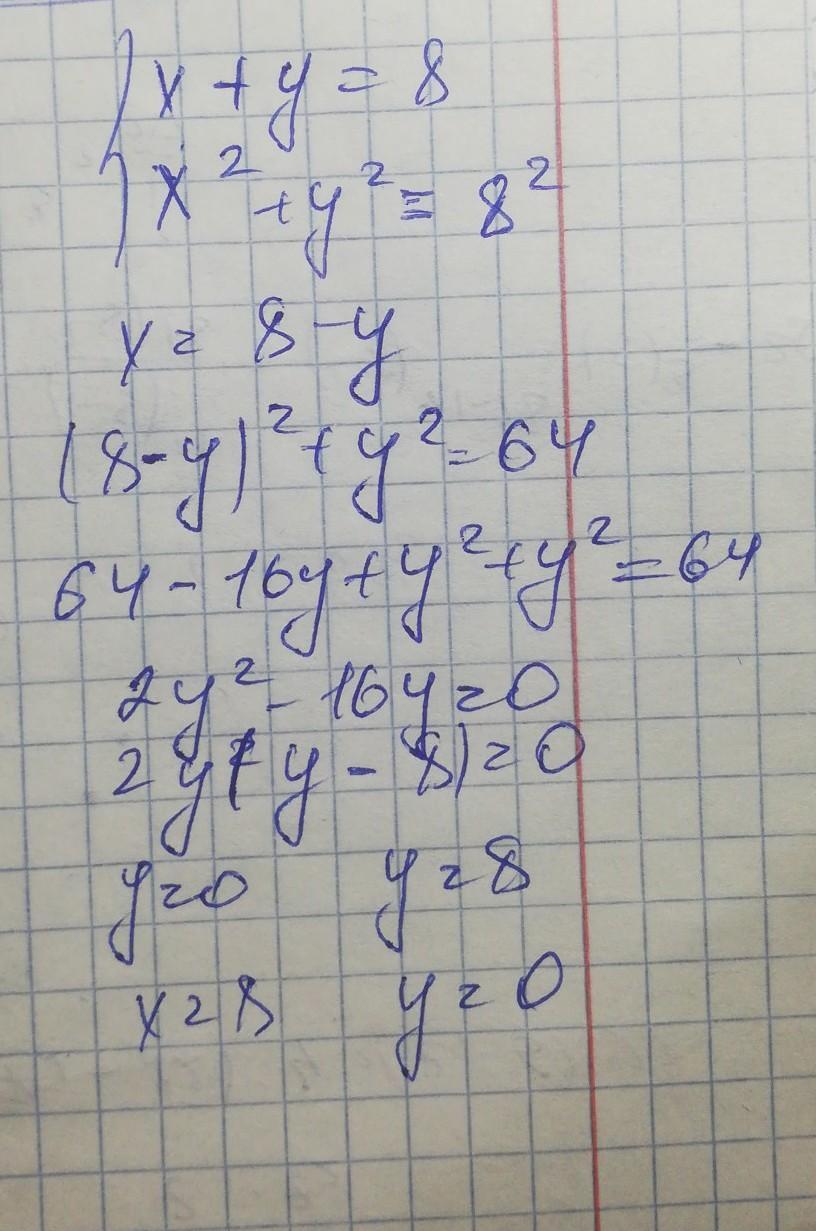 { x + y = 8
x² + y² = 8²
x = 8 - y
(8-y)² + y² = 64
64 - 16y + y² + y² = 64
2y² - 16y = 0
2y(y - 8) = 0
y=0 y=8
x=8 y=0